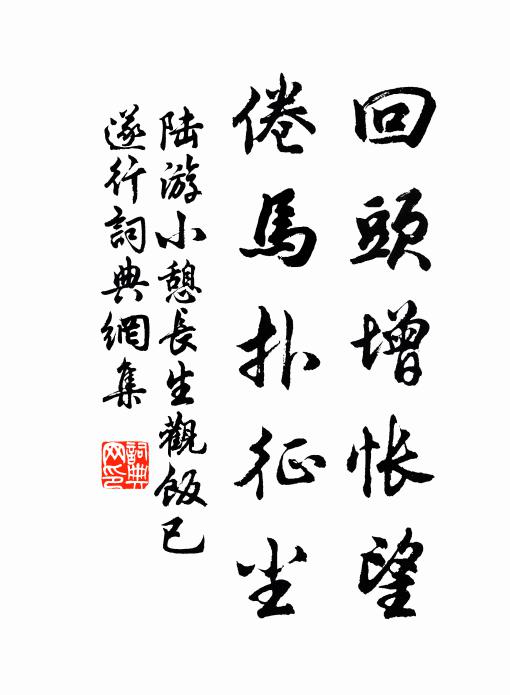 回頭增悵望
倦馬扑征尘
陆游小憩長生觀飯已
遂行詞典網集
詞典
网印